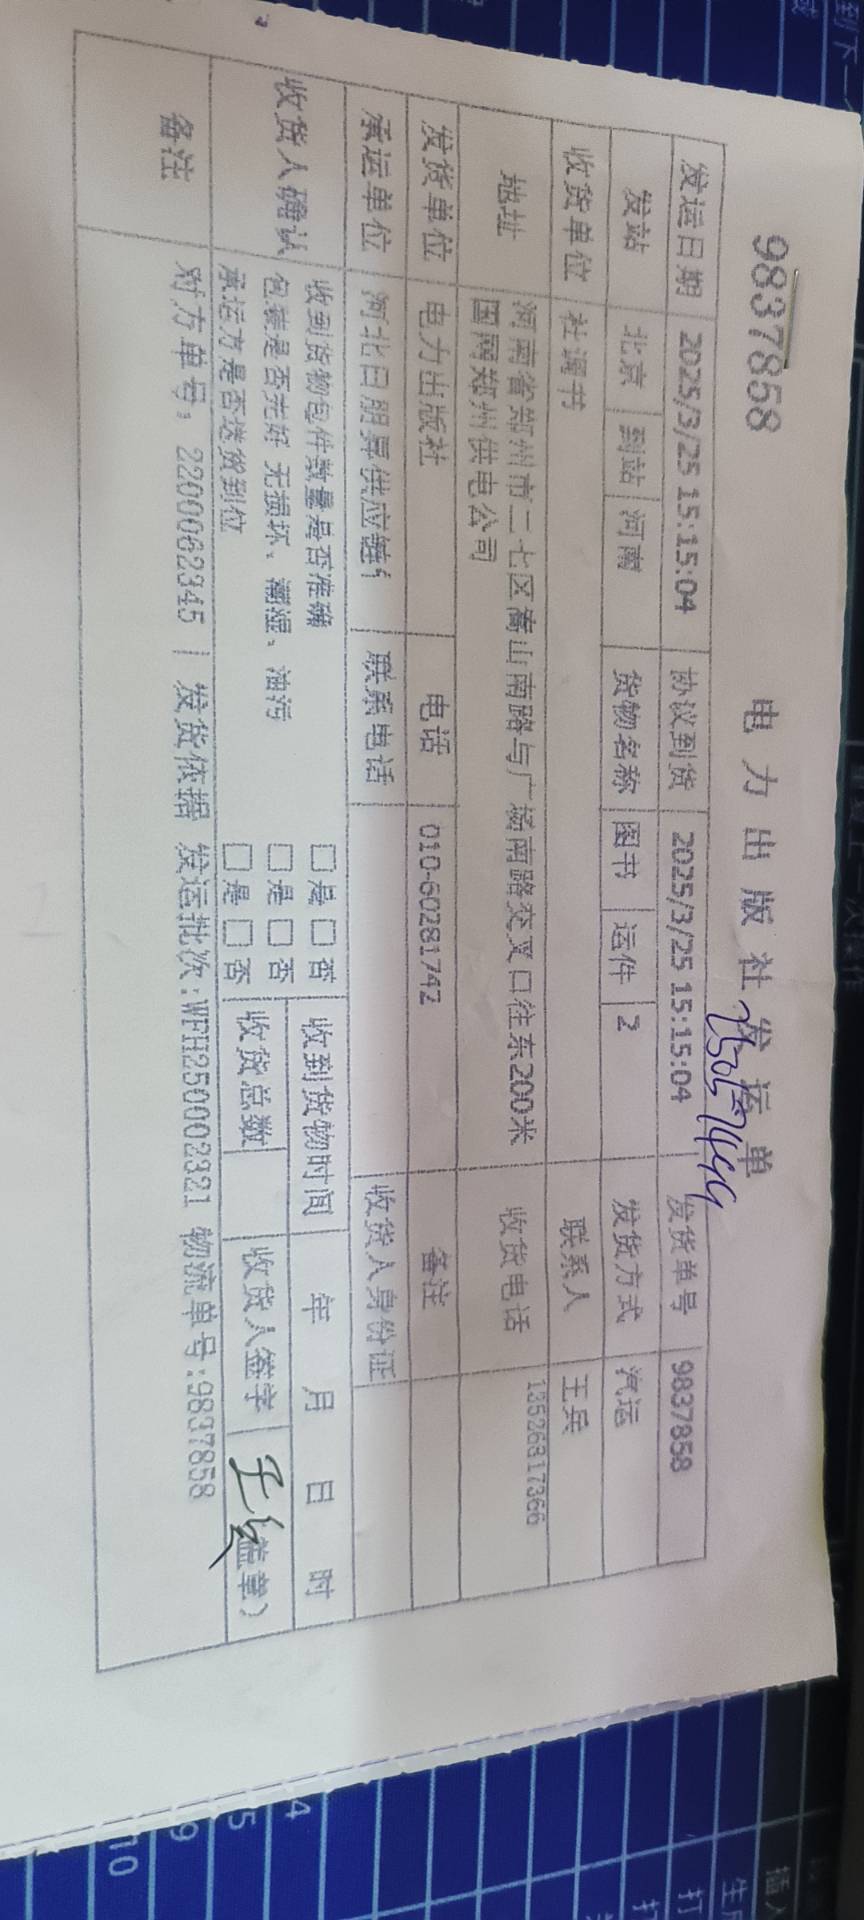 9837858
电力出版社发运单
发运日期 2025/3/25 15:15:04 协议到货 2025/3/25 15:15:04 发货单号 9837858
发站 北京 到站 河南 货物名称 图书 运件 2 发货方式 汽运
收货单位 社调书 联系人 王兵
地址 河南省郑州市二七区嵩山南路与广场南路交叉口往东200米 收货电话 13526817366
国网郑州供电公司
发货单位 电力出版社 电话 010-60281742 备注
承运单位 河北日朋昇供应链 联系电话 收货人身份证
收货人确认 收到货物包件数量是否准确 □是 □否 收到货物时间 年 月 日 时
包装是否完好 无损坏、潮湿、油污 □是 □否
承运方是否送货到位 □是 □否 收货总数 收货人签字 盖章)
备注 对方单号：2200062345 | 发货依据 发运批次:WFH250002321 物流单号:9837858
4
5
9
10